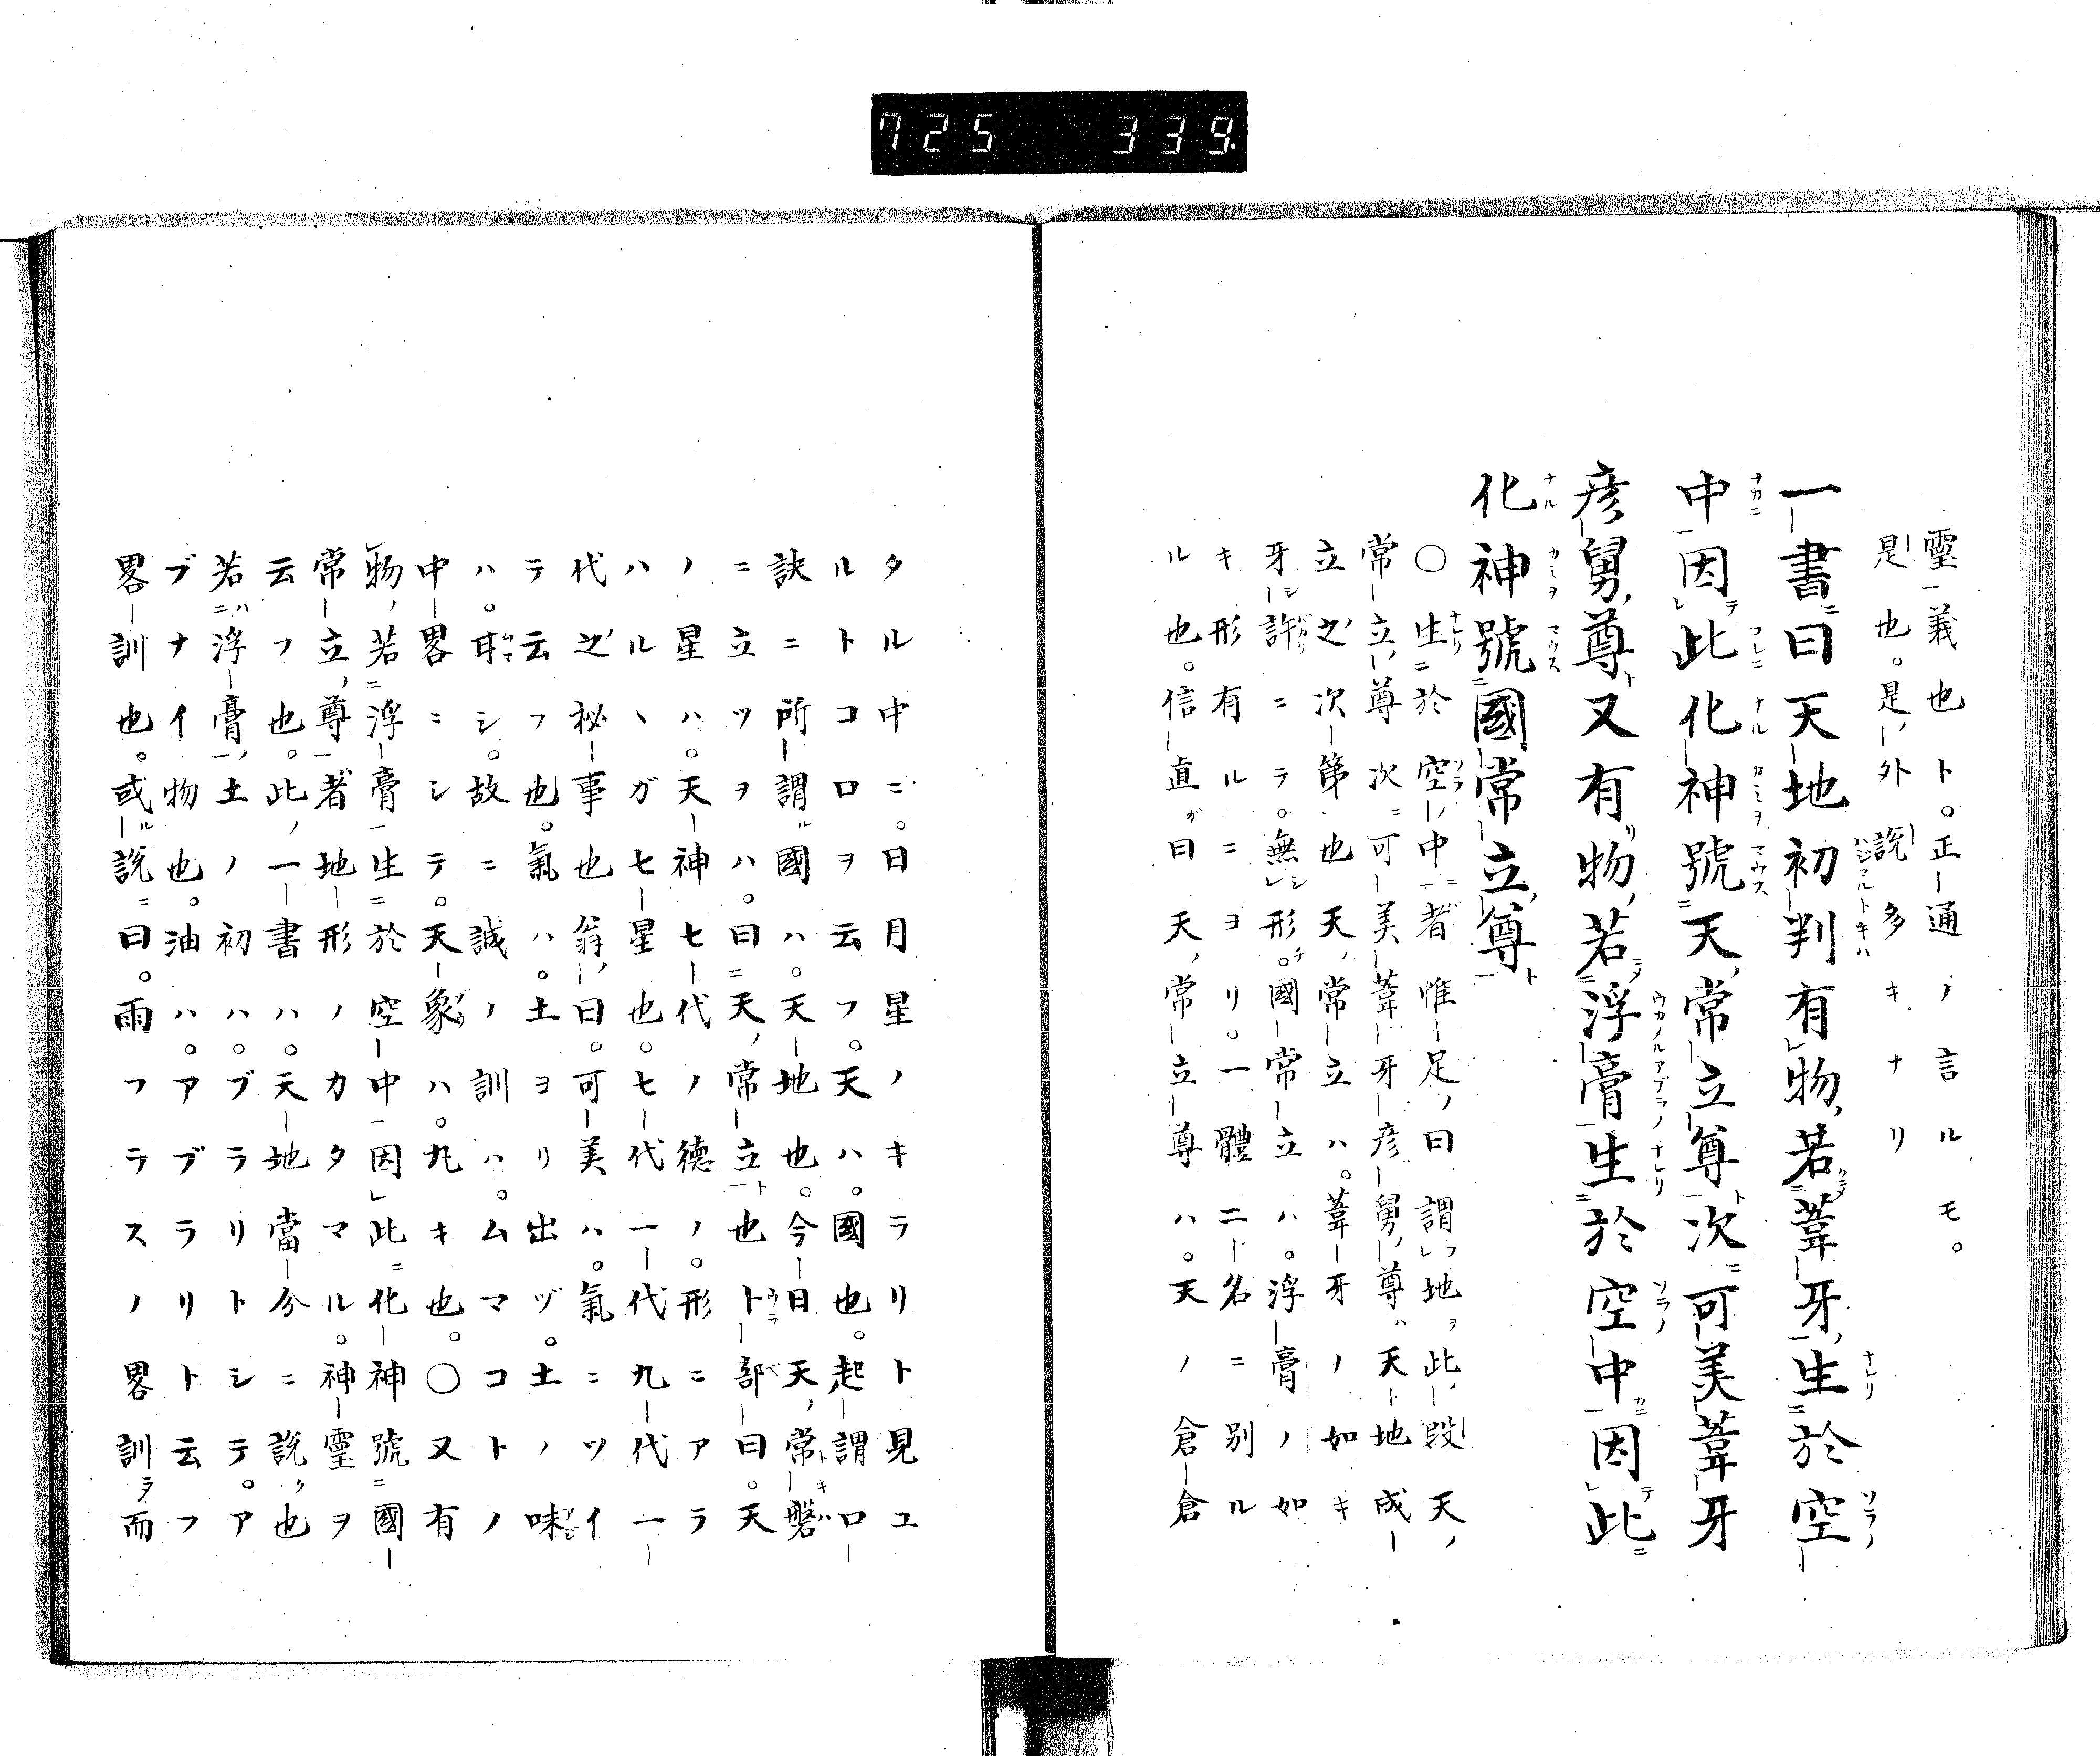 725 339
靈一義也ト。正通ノ言ルモ。
是也。是外説多キナリ
一書曰天地初判有物若葦牙生於空
中因此化神號天常立尊次可美葦牙
彦舅尊又有物若浮膏生於空中因此
化神號國常立尊
○生於空中者惟足曰謂地此段天
常立尊次可美葦牙彦舅尊天地成
立之次第也天常立ハ。葦牙ノ如キ
牙許ニテ。無形。國常立ハ。浮膏ノ如
キ形有ルニヨリ。一體二名ニ別ル
ル也。信直曰天常立尊ハ。天ノ倉倉
タル中ニ。日月星ノキラリト見ユ
ルトコロヲ云フ。天ハ。國也。起謂口
訣ニ所謂國ハ。天地也。今日天常磐
ニ立ツヲハ。曰天常立也卜部曰。天
ノ星ハ。天神七代ノ德ノ。形ニアラ
ハルヽガ七星也。七代一代九代一
代之祕事也翁曰。可美ハ。氣ニツイ
テ云フ也。氣ハ。土ヨリ出ヅ。土ノ味
ハ。耳シ。故ニ誠ノ訓ハ。ムマコトノ
中畧ニシテ。天象ハ。丸キ也。○又有
物若浮膏生於空中因此化神號國
常立尊者地形ノカタマル。神靈ヲ
云フ也。此一書ハ。天地當分ニ説也
若浮膏土ノ初ハ。ブラリトシテ。ア
ブナイ物也。油ハ。アブラリト云フ
畧訓也。或説曰。雨フラスノ畧訓而